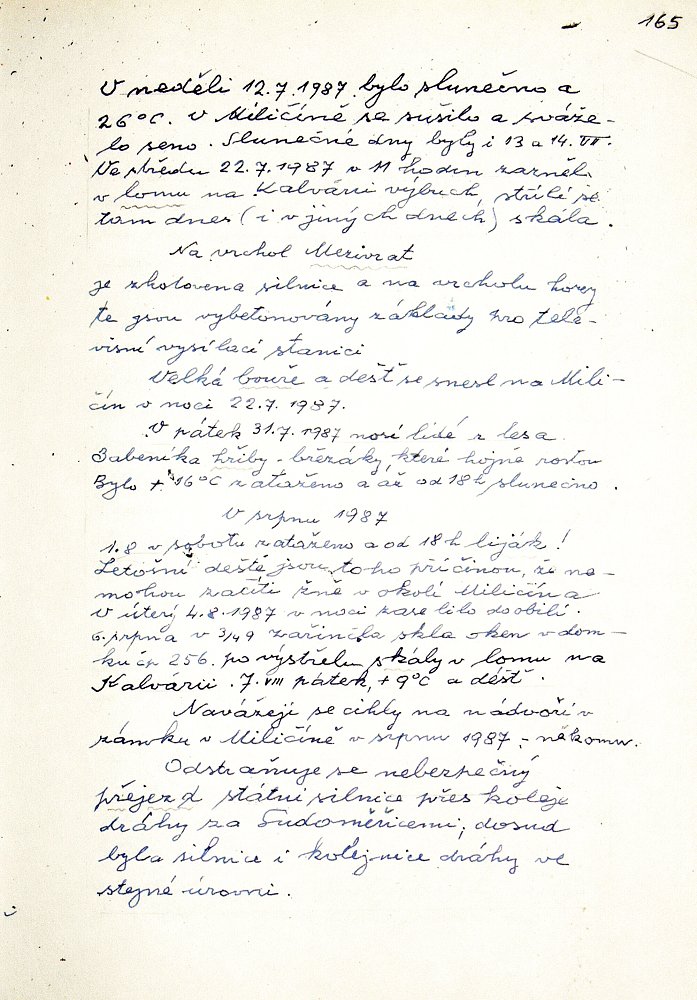 165
V neděli 12.7.1987 bylo slunečno a
26°C. V Miličíně se sušilo a sváže-
lo seno. Slunečné dny byly i 13 a 14. VII.
Ve středu 22.7.1987 v 11 hodin zazněl
v lomu na Kalvárii výbuch, střílí se
tam dnes (i v jiných dnech) skála.
Na vrchol Mezivrat
je zhotovena silnice a na vrcholu hory
té jsou vybetonovány základy pro tele-
visní vysílací stanici
Velká bouře a déšť se snesl na Mili-
čín v noci 22.7.1987.
V pátek 31.7.1987 nosí lidé z lesa
Babeníka hřiby - březáky, které hojně rostou
Bylo + 16°C zataženo a až od 18h slunečno.
V srpnu 1987
1.8 v sobotu zataženo a od 18 h liják!
Letošní deště jsou toho příčinou, že ne-
mohou začíti žně v okolí Miličína
V úterý 4.8.1987 v noci zase lilo do obilí.
6. srpna v 3/4 9 zařinčila skla oken v dom-
ku čp 256. po výstřelu skály v lomu na
Kalvárii. 7. VIII pátek, + 9°C a déšť.
Navážejí se cihly na nádvoří v
zámku v Miličíně v srpnu 1987, - někomu.
Odstraňuje se nebezpečný
přejezd státní silnice přes koleje
dráhy za Sudoměřicemi; dosud
byla silnice i kolejnice dráhy ve
stejné úrovni.